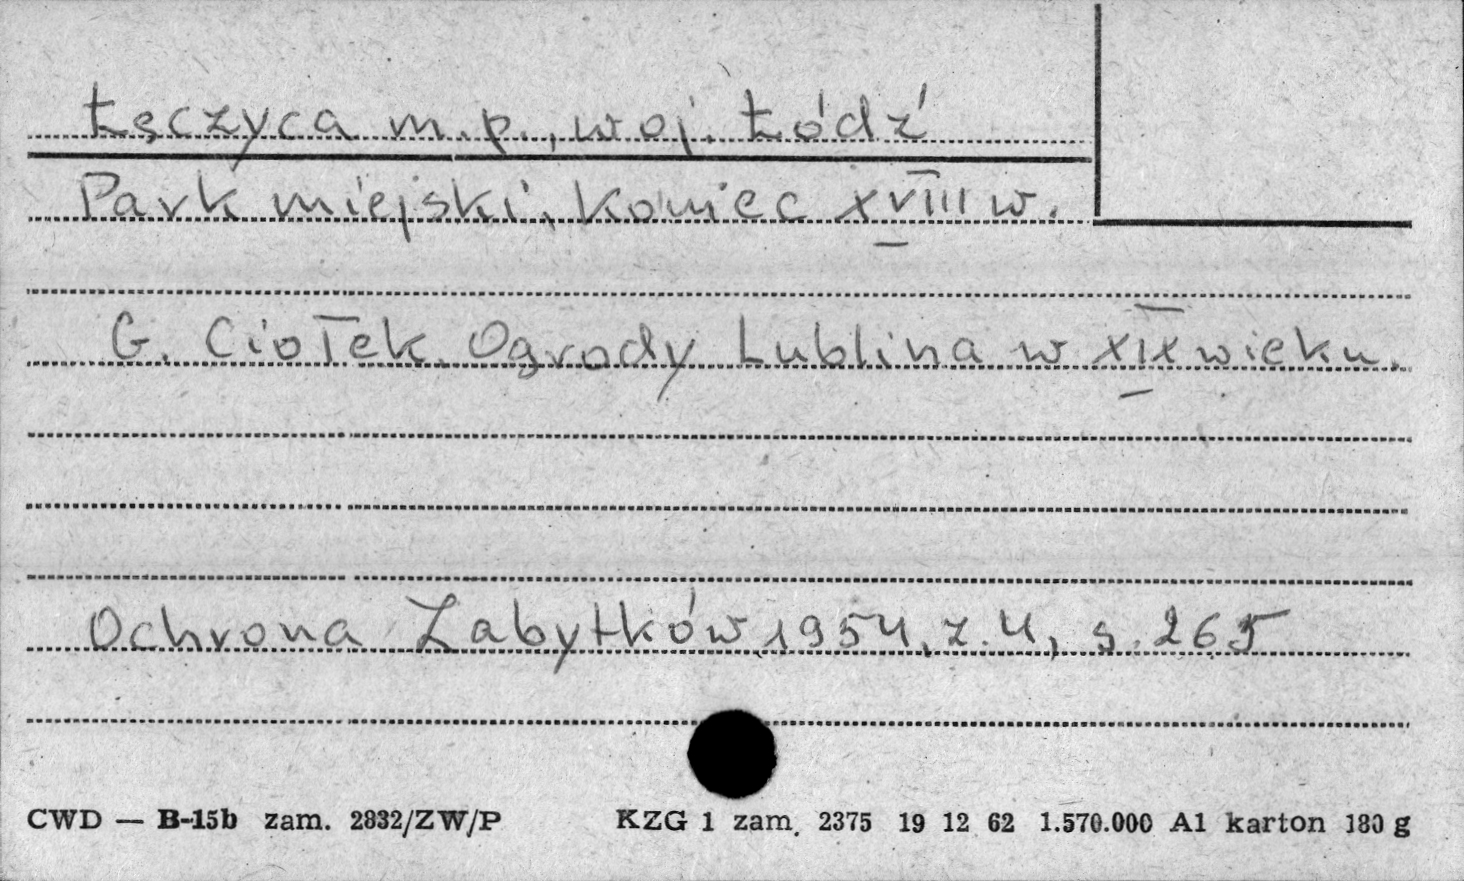 Łęczyca m.p., woj. Łódź
Park miejski, koniec XVIII w.
G. Ciołek. Ogrody Lublina w XIX wieku.
Ochrona Zabytków, 1954, z. 4, s. 265
CWD — B-15b zam. 2832/ZW/P KZG 1 zam. 2375 19 12 62 1.570.000 A1 karton 180 g